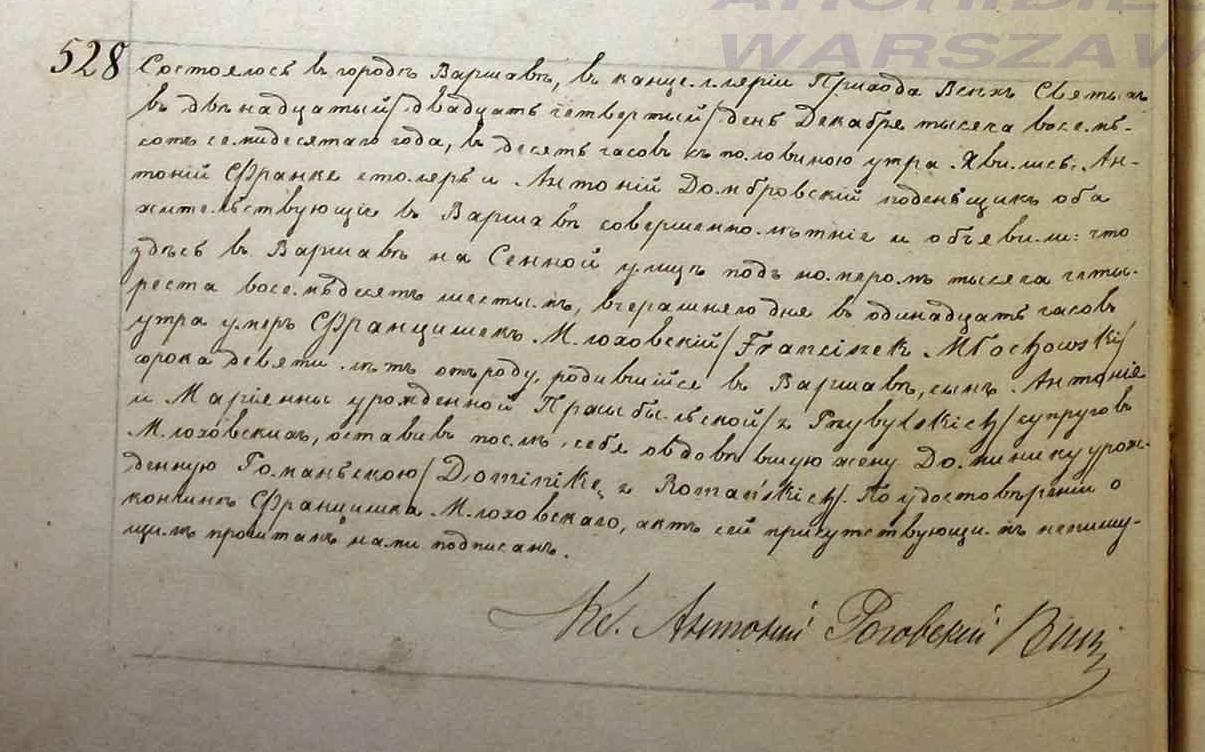 ARCHIDIEC
WARSZAW
528 Состоялось въ городѣ Варшавѣ, въ канцелляріи Прихода Всѣхъ Святыхъ
въ двѣнадцатый/двадцать четвертый/день Декабря тысяча восемь-
сотъ семидесятаго года, въ десять часовъ съ половиною утра. Явились: Ан-
тоній Франке столяръ и Антоній Домбровскій поденьщикъ оба
жительствующіе въ Варшавѣ совершеннолѣтніе и объевили: что
здѣсь въ Варшавѣ на Сенной улицѣ подъ номеромъ тысяча четы-
реста восемьдесятъ шестымъ, вчерашняго дня въ одинадцать часовъ
утра умеръ Францишекъ Млоховскій/Franciszek Młochowski/
сорока девяти лѣтъ отъ роду, родившійсе въ Варшавѣ, сынъ Антонія
и Маріенны урожденной Пршыбыльской/z Przybylskich/супруговъ
Млоховскихъ, оставивъ послѣ себя овдовѣвшую жену Доминику урож-
денную Романьскою/Dominikę z Romańskich/. По удостовѣреніи о
кончинѣ Францишка Млоховскаго, актъ сей присутствующимъ непишу-
щимъ прочитанъ нами подписанъ.
Кс. Антоній Роговскій